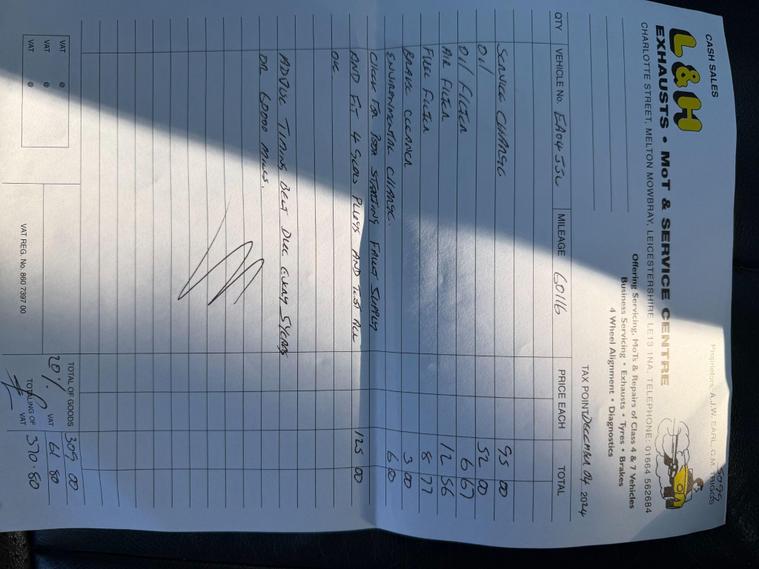 CASH SALES
L&H
EXHAUSTS • MoT & SERVICE CENTRE
CHARLOTTE STREET, MELTON MOWBRAY, LEICESTERSHIRE LE13 1NA. TELEPHONE: 01664 562684
Offering Servicing, MoTs & Repairs of Class 4 & 7 Vehicles
Business Servicing • Exhausts • Tyres • Brakes
4 Wheel Alignment • Diagnostics
TAX POINT DECEMBER 04 2024
QTY VEHICLE No. MILEAGE 60116 PRICE EACH TOTAL
SERVICE CHARGE 95 00
OIL 52 00
OIL FILTER 6 67
AIR FILTER 12 56
FUEL FILTER 8 77
BRAKE CLEANER 3 00
ENVIRONMENTAL CHARGE 6 00
CHECK FOR POOR STARTING FAULT SUPPLY
AND FIT 4 GLOW PLUGS AND TEST ALL 125 00
OK
ADVISE TIMING BELT DUE EVERY 5 YEARS
OR 60000 MILES.
TOTAL OF GOODS 309 00
VAT @
VAT @
VAT @
20% VAT 61 80
VAT REG. No. 860 7397 00
TOTAL INC OF VAT 370.80